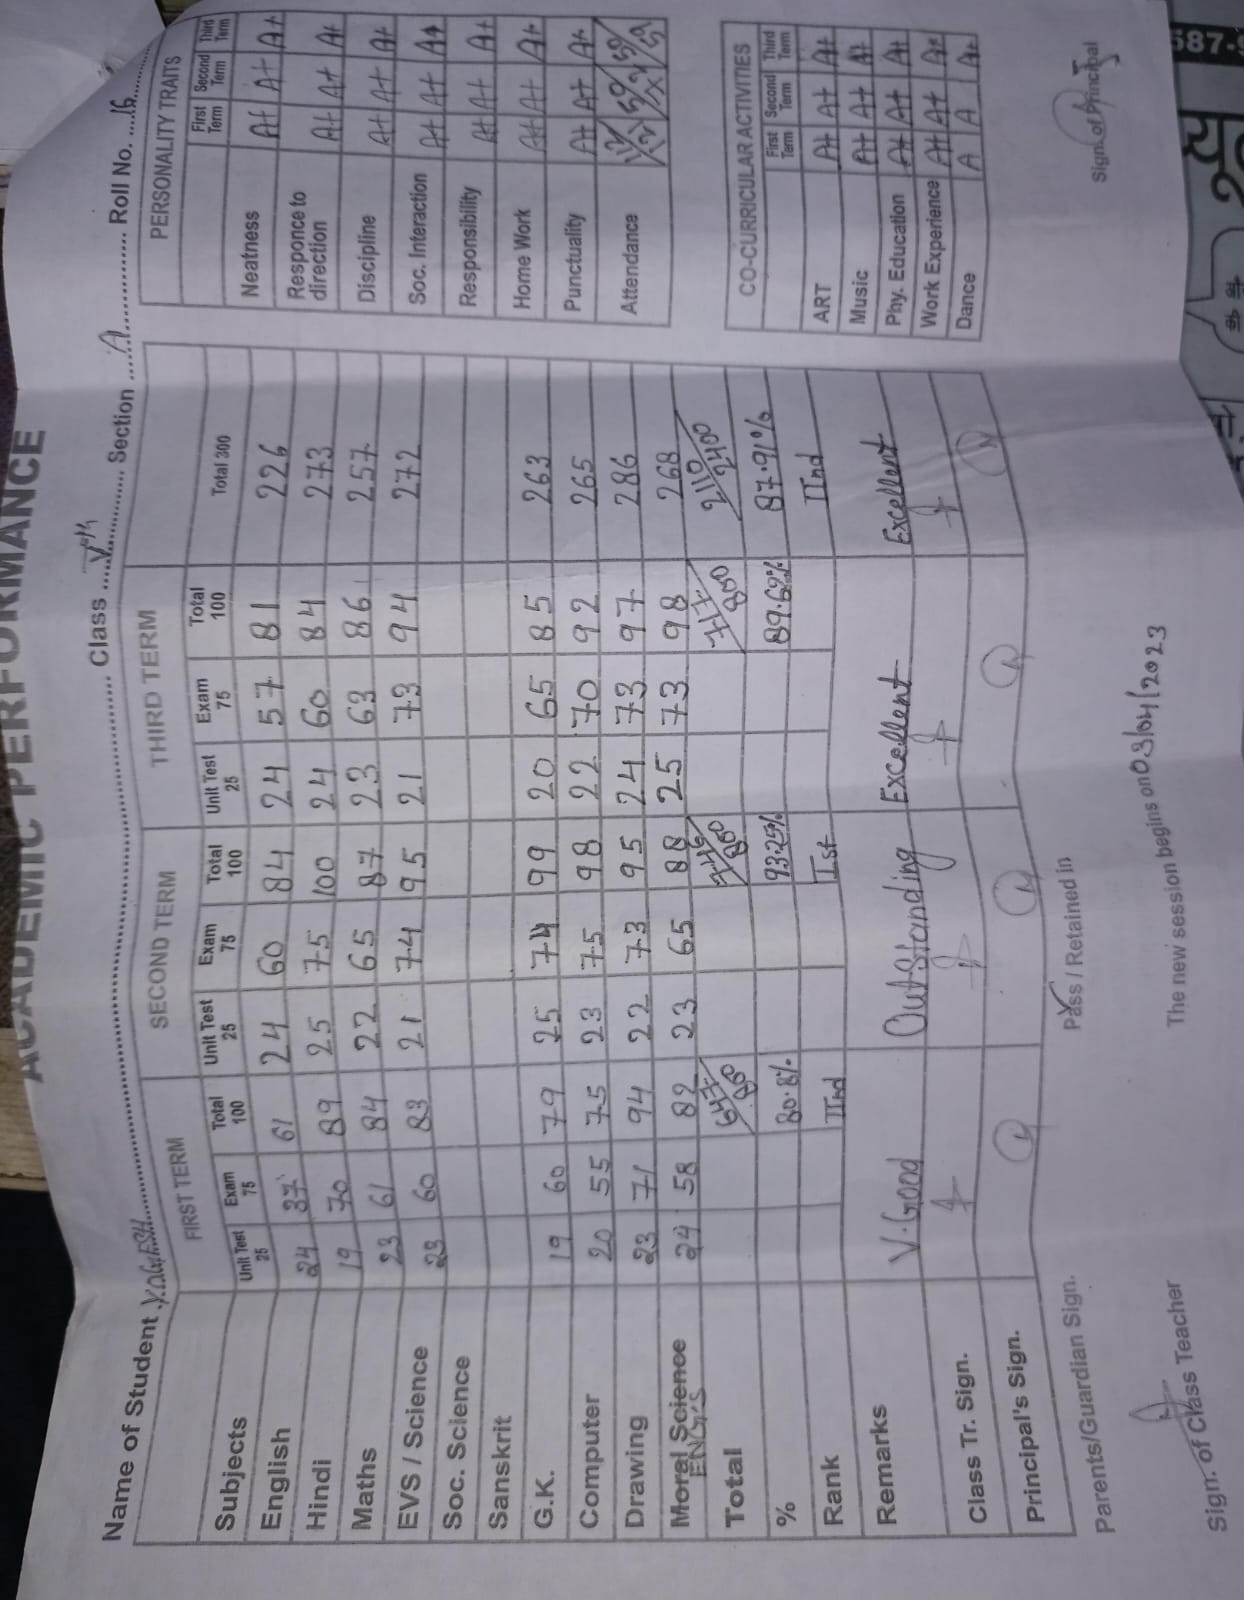 ACADEMIC PERFORMANCE
Name of Student YOGESH Class Vth Section A Roll No. 16
Subjects FIRST TERM SECOND TERM THIRD TERM
Unit Test 25 Exam 75 Total 100 Unit Test 25 Exam 75 Total 100 Unit Test 25 Exam 75 Total 100 Total 300
English 24 37 61 24 60 84 24 57 81 226
Hindi 19 70 89 25 75 100 24 60 84 273
Maths 23 61 84 22 65 87 23 63 86 257
EVS / Science 23 60 83 21 74 95 21 73 94 272
Soc. Science
Sanskrit
G.K. 19 60 79 25 74 99 20 65 85 263
Computer 20 55 75 23 75 98 22 70 92 265
Drawing 23 71 94 22 73 95 24 73 97 286
Moral Science 24 58 82 23 65 88 25 73 98 268
ENG'S
Total 647/800 746/800 717/800 2110/2400
% 80.8% 93.25% 89.62% 87.91%
Rank IInd Ist IInd
Remarks V. Good Outstanding Excellent Excellent
Class Tr. Sign.
Principal's Sign.
Parents/Guardian Sign. Pass / Retained in
Sign. of Class Teacher The new session begins on 03/04/2023
PERSONALITY TRAITS
First Term Second Term Third Term
Neatness A+ A+ A+
Responce to direction A+ A+ A+
Discipline A+ A+ A+
Soc. Interaction A+ A+ A+
Responsibility A+ A+ A+
Home Work A+ A+ A+
Punctuality A+ A+ A+
Attendance
CO-CURRICULAR ACTIVITIES
First Term Second Term Third Term
ART A+ A+ A+
Music A+ A+ A+
Phy. Education A+ A+ A+
Work Experience A+ A+ A+
Dance A A A+
Sign. of Principal